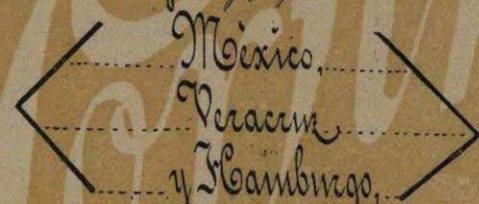 México,
Veracruz
y Hamburgo,